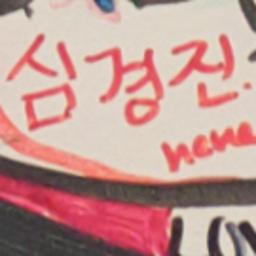 심경진.
nene